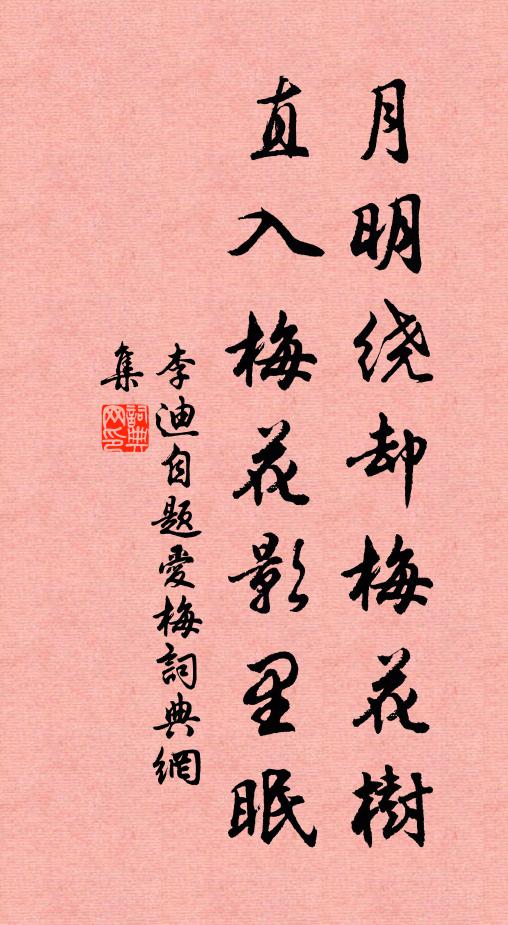 月明绕却梅花樹
直入梅花影里眠
李迪自题愛梅詞典網
集
詞典
网印